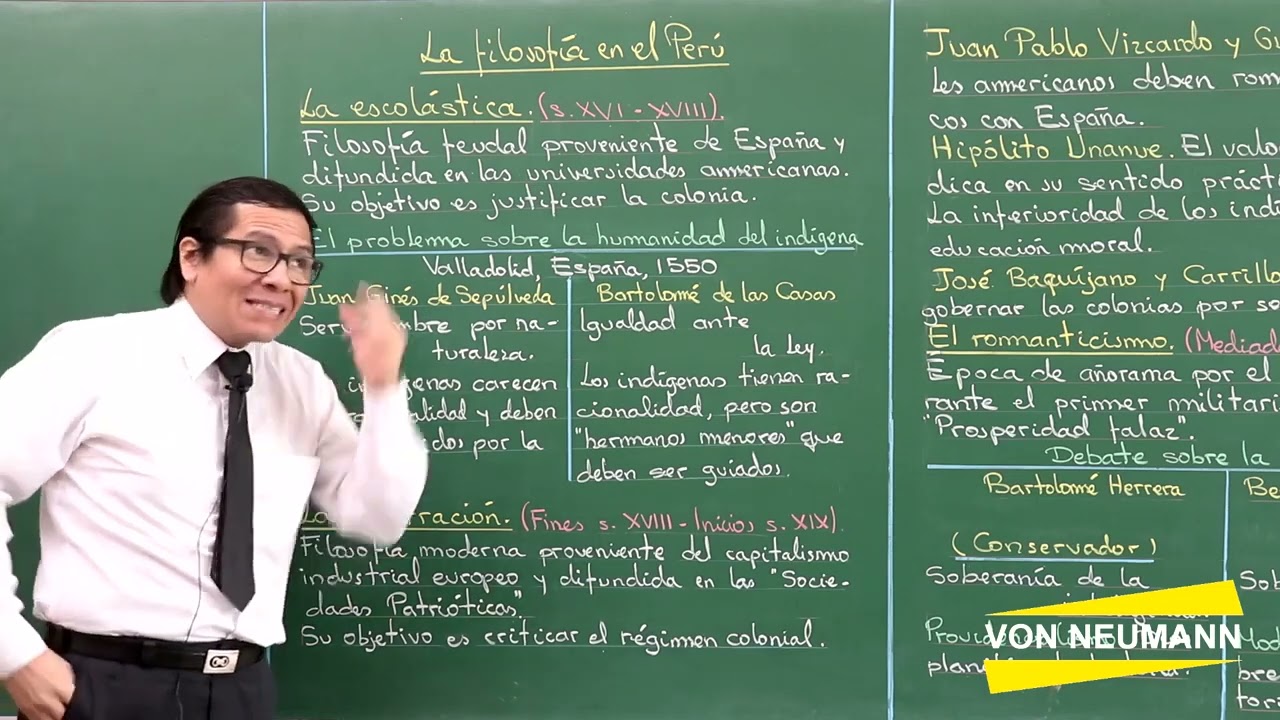 La filosofía en el Perú
La escolástica. (s. XVI - XVIII).
Filosofía feudal proveniente de España y
difundida en las universidades americanas.
Su objetivo es justificar la colonia.
El problema sobre la humanidad del indígena
Valladolid, España, 1550
Juan Ginés de Sepúlveda
por na-
turaleza.
carecen
y deben
por la
Bartolomé de las Casas
Igualdad ante
la ley.
Los indígenas tienen ra-
cionalidad, pero son
"hermanos menores" que
deben ser guiados.
(Fines s. XVIII - Inicios s. XIX).
Filosofía moderna proveniente del capitalismo
industrial europeo y difundida en las "Socie-
dades Patrióticas".
Su objetivo es criticar el régimen colonial.
Juan Pablo Vizcardo y
Los americanos deben
cos con España.
Hipólito Unanue. El
dica en su sentido
La inferioridad de los
educación moral.
José Baquíjano y Carrillo
gobernar las colonias por
El romanticismo.
Época de añorama por el
rante el primer
"Prosperidad falaz".
Debate sobre la
Bartolomé Herrera
(Conservador)
Soberanía de la
VON NEUMANN